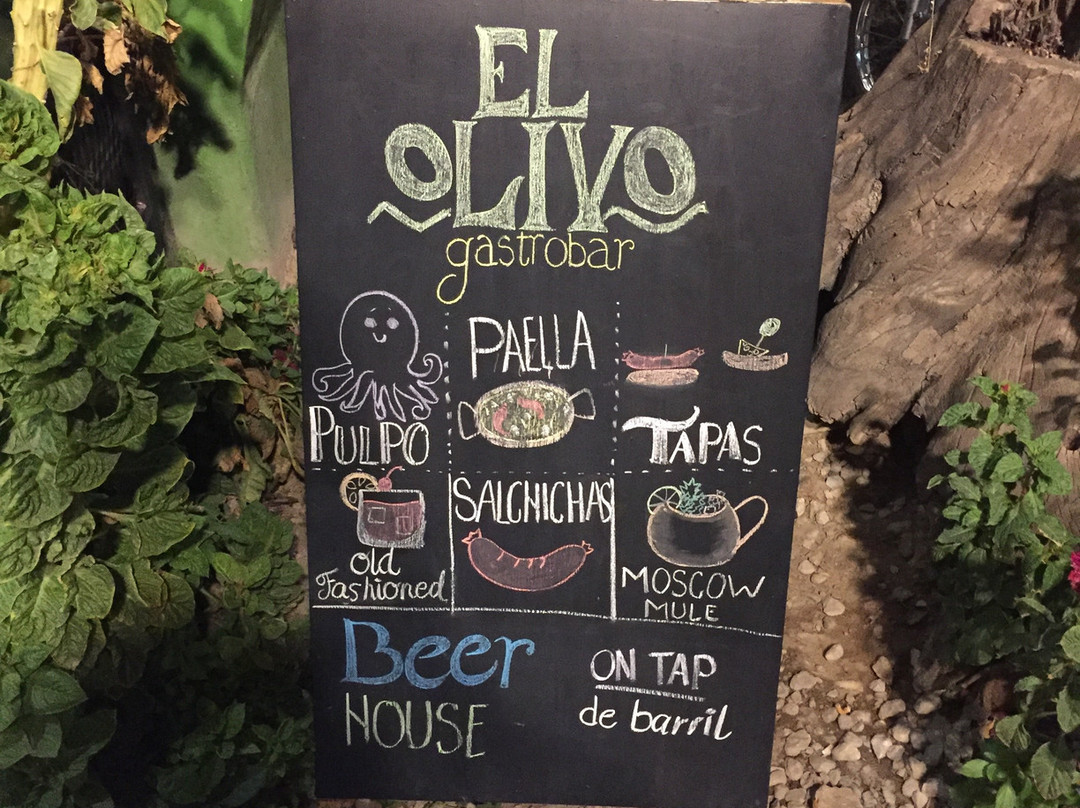 EL
OLIVO
gastrobar
PULPO
PAELLA
TAPAS
Old
Fashioned
SALCHICHAS
MOSCOW
MULE
Beer
HOUSE
ON TAP
de barril